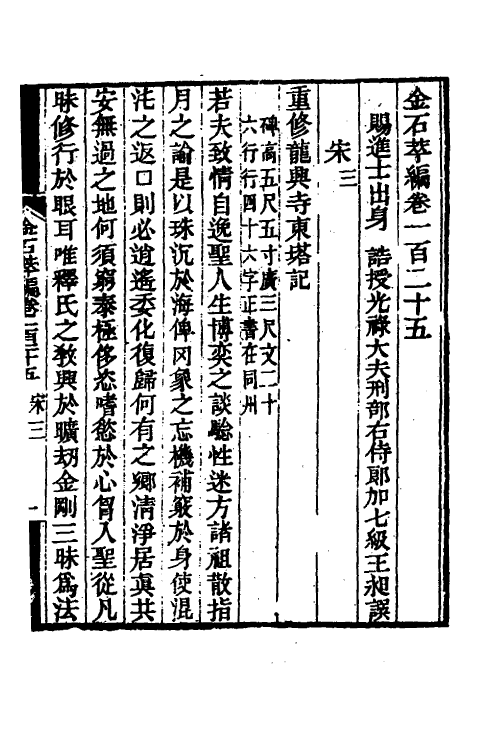 金石萃編卷一百二十五
賜進士出身 誥授光祿大夫刑部右侍郎加七級王昶譔
宋三
重修龍興寺東塔記
碑高五尺五寸廣三尺文二十
六行行四十六字正書在同州
若夫致情自逸聖人生博奕之談驗性迷方諸祖散指
月之論是以珠沉於海俾罔象之忘機補竅於身使混
沌之返口則必逍遙委化復歸何有之鄉清淨居真共
安無過之地何須窮泰極侈恣嗜慾於心胷入聖從凡
昧修行於眼耳唯釋氏之教興於曠劫金剛三昧爲法
金石萃編卷一百二十五 宋三 一